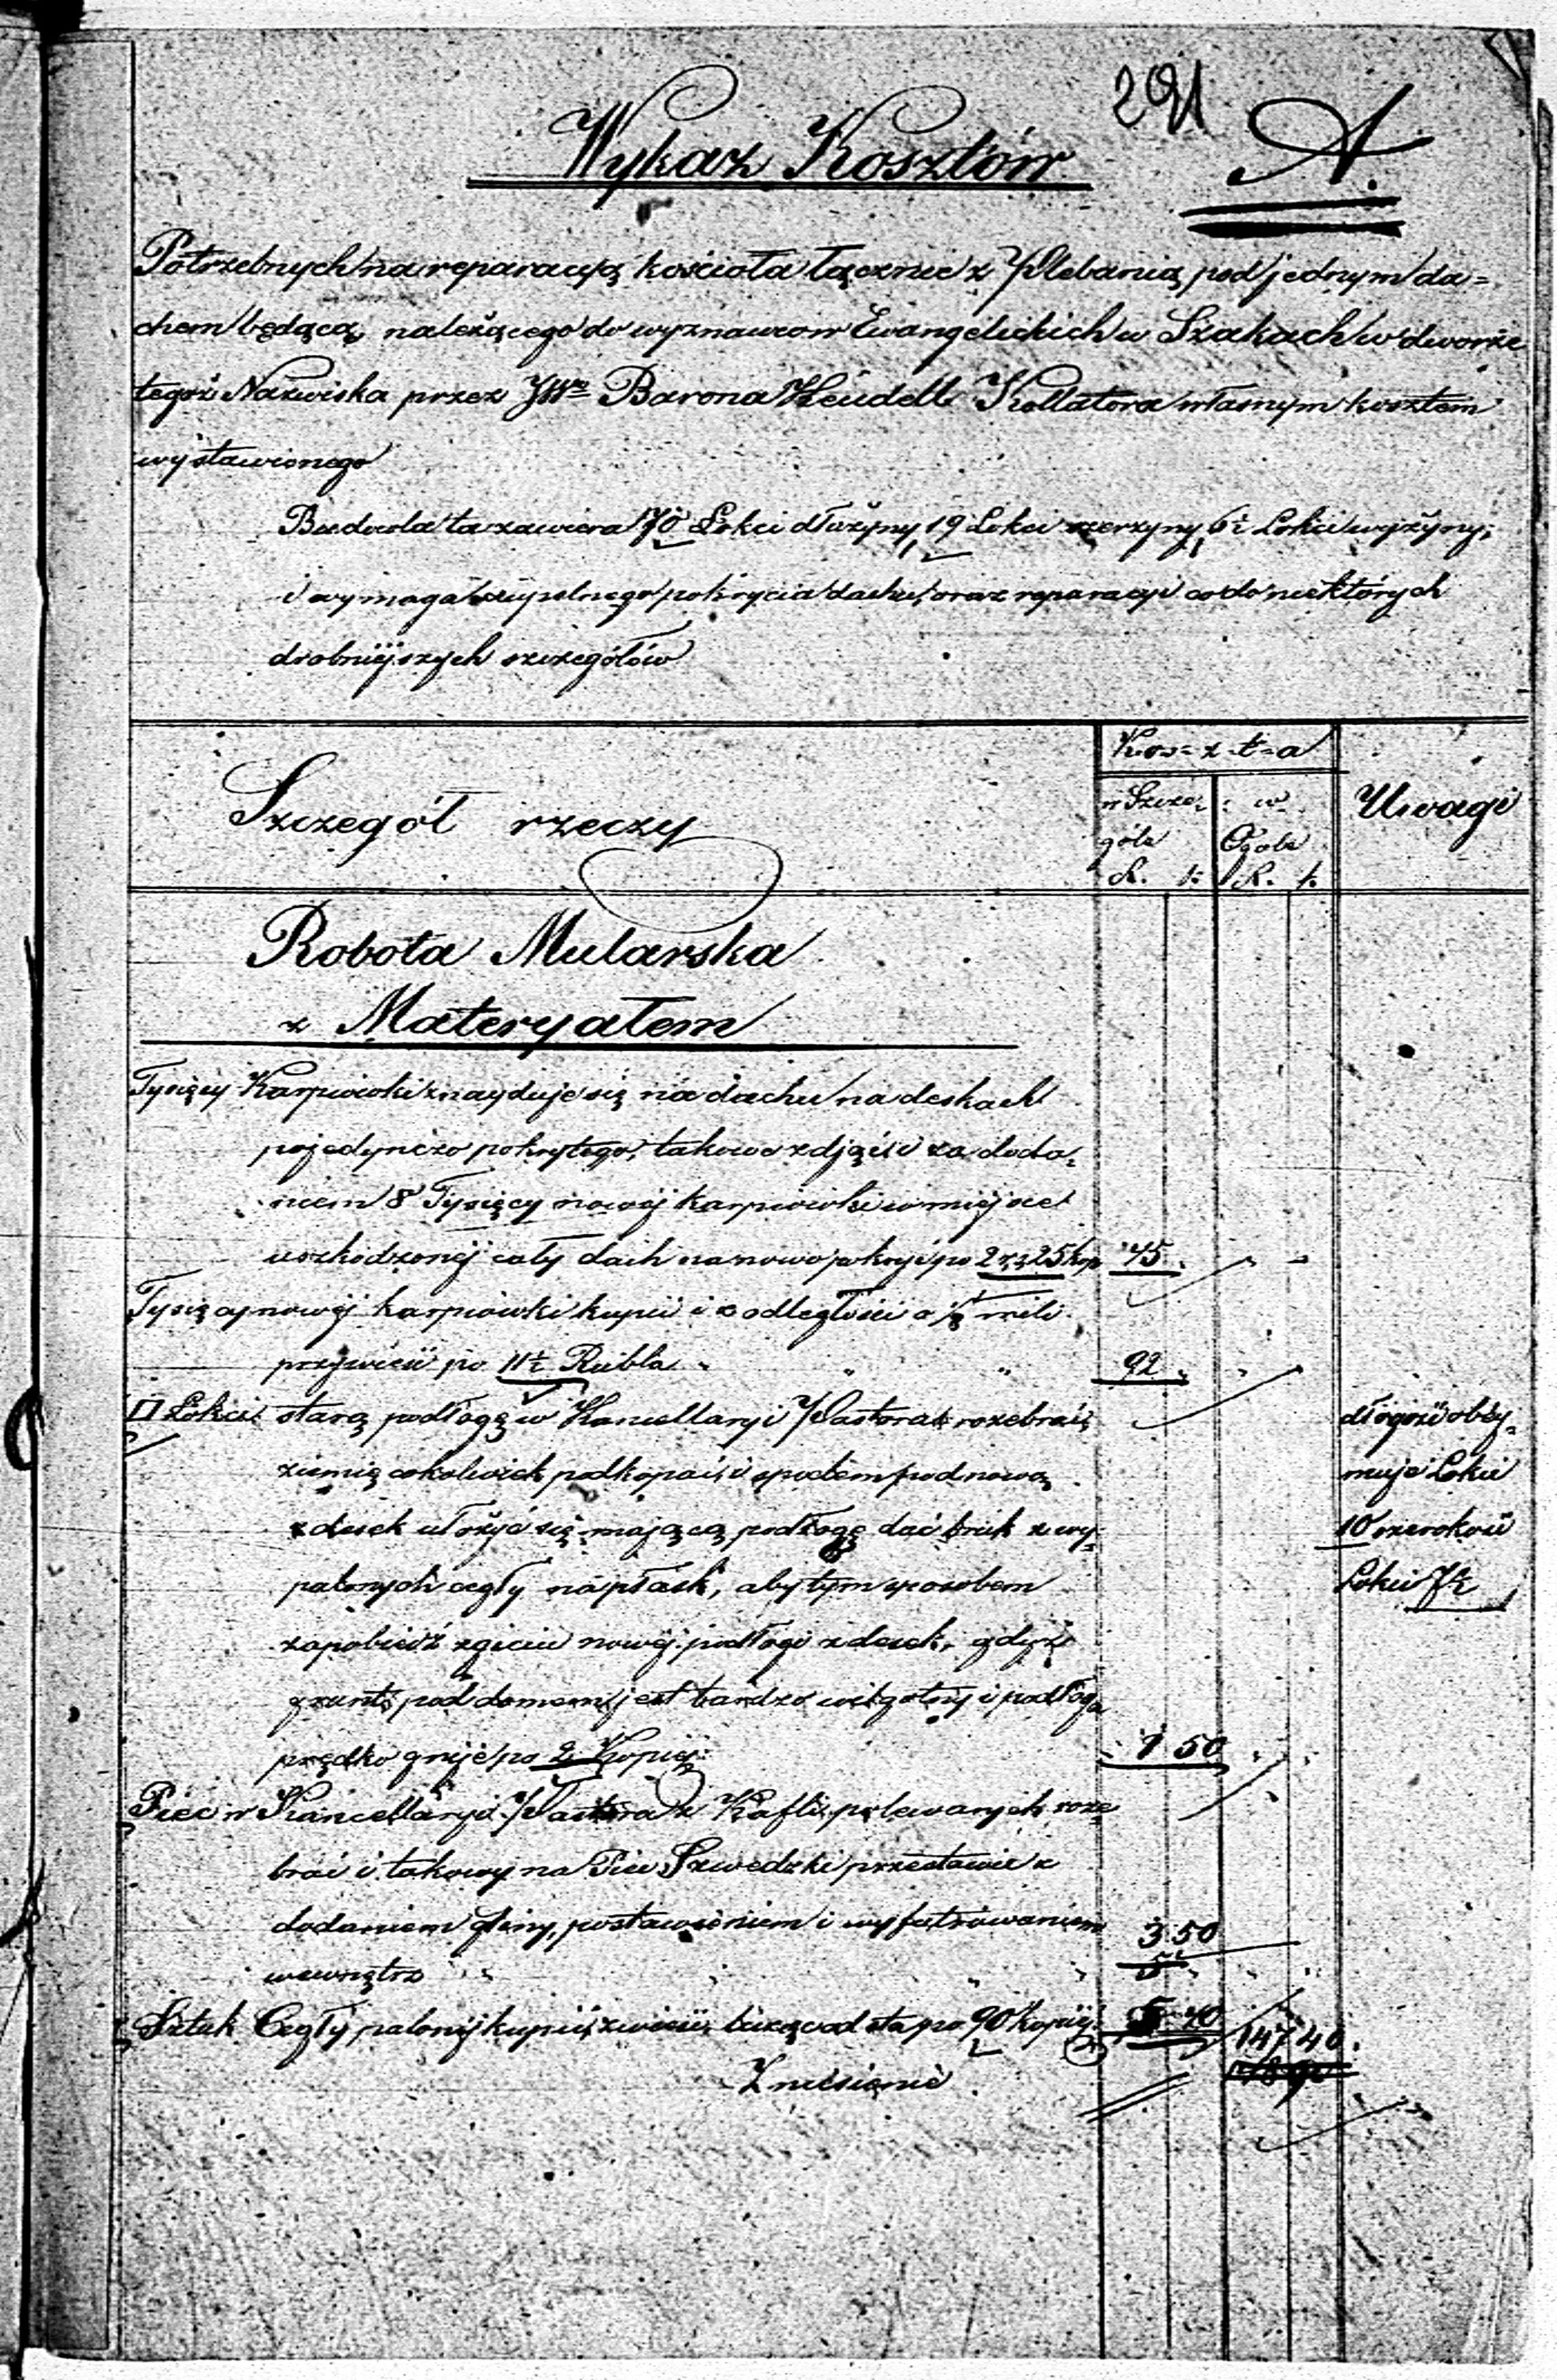 291
A.
Wykaz Kosztów
Potrzebnych na reparacyą kościoła łącznie z Plebanią pod jednym da=
chem będącą, należącego do wyznawcow Ewangelickich w Szakach w dworze
tegoż Nazwiska przez JWo Barona Keudell Kollatora własnym kosztem
wystawionego
Budowla ta zawiera 70 Łokci dłużyny, 19 Łokci szerzyny, 6½ Łokci wyżyny,
i wymaga zupełnego pokrycia dachu, oraz reparacyi co do niektórych
drobniejszych szczegółów
Szczegół rzeczy
Kos=z-t=a
w Szcze- góle
w Ogole
R. k. R. k.
Uwagi
Robota Mularska
z Materyałem
Tysięcy Karpiowki znayduje się na dachu na deskach
pojedynczo pokrytego, takowe zdjąć i za doda-
niem 8 Tysięcy nowéj karpiowki w miejsce
uszkodzonéj cały dach na nowo pokryć po 2 r. 25 kop 45
Tysięcy nowéj karpiowki kupić i z odległości mili
przywieść po 11½ Rubla 92
□ Łokci starą podłogę w Kancellaryi Pastora rozebrać,
ziemię cokolwiek podkopać, i spodem pod nową
z desek ułożyć się mającą podłogę dać bruk z wy-
palonych cegły na płask, aby tym sposobem
zapobiedź zgiciu nowéj podłogi z desek, gdyż
grunt pod domem jest bardzo wilgotny i podłoga
prędko gnije po 2 Kopiej: 1 50
długość obey-
muje Łokci
10 szerokość
Łokci 7½
Piec w Kancellaryi Pastora z Kafli polewanych roze-
brać i takowy na Piec Szwedzki przestawić z
dodaniem gliny, postawieniem i wyfutrowaniem 3 50
wewnątrz 5
Sztuk Cegły palonéj kupić, zwieść, licząc od sta po 90 kopiej. 5 40
147 40.
Zniesienie